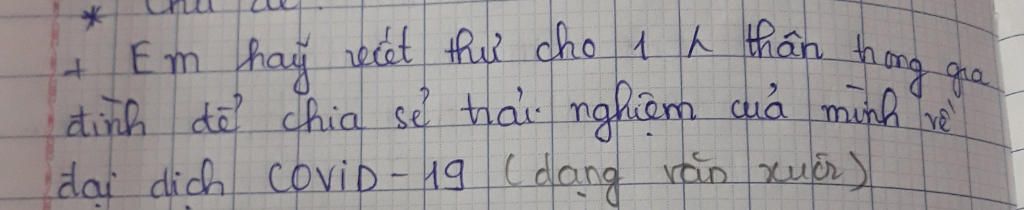 *
+ Em hãy viết thư cho 1 người thân trong gia
đình để chia sẻ trải nghiệm của mình về
đại dịch COVID-19 (dạng văn xuôi)